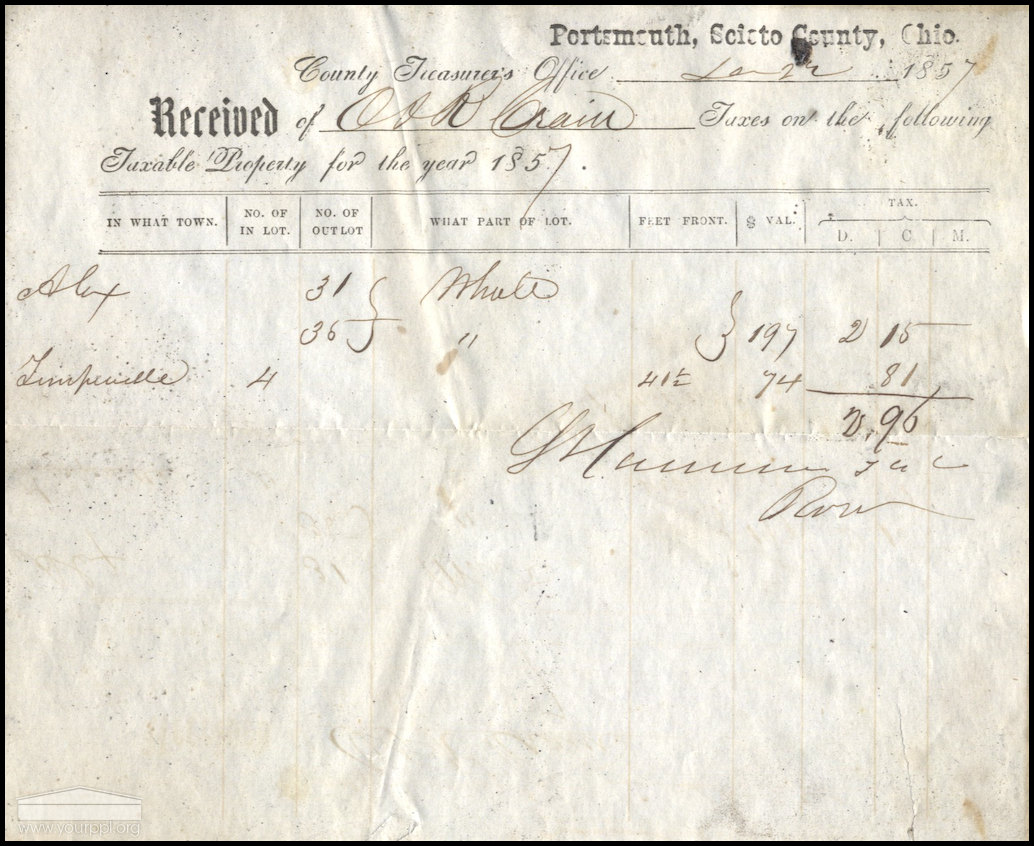 Portsmouth, Scioto County, Ohio.
County Treasurer's Office 1857
Received of O A R Crain Taxes on the following
Taxable Property for the year 1857.
IN WHAT TOWN. NO. OF IN LOT. NO. OF OUTLOT WHAT PART OF LOT. FEET FRONT. $ VAL. TAX. D. C. M.
Alex 31 Whole
36 " 197 2 15
4 41½ 74 81
2.96
www.yourppl.org